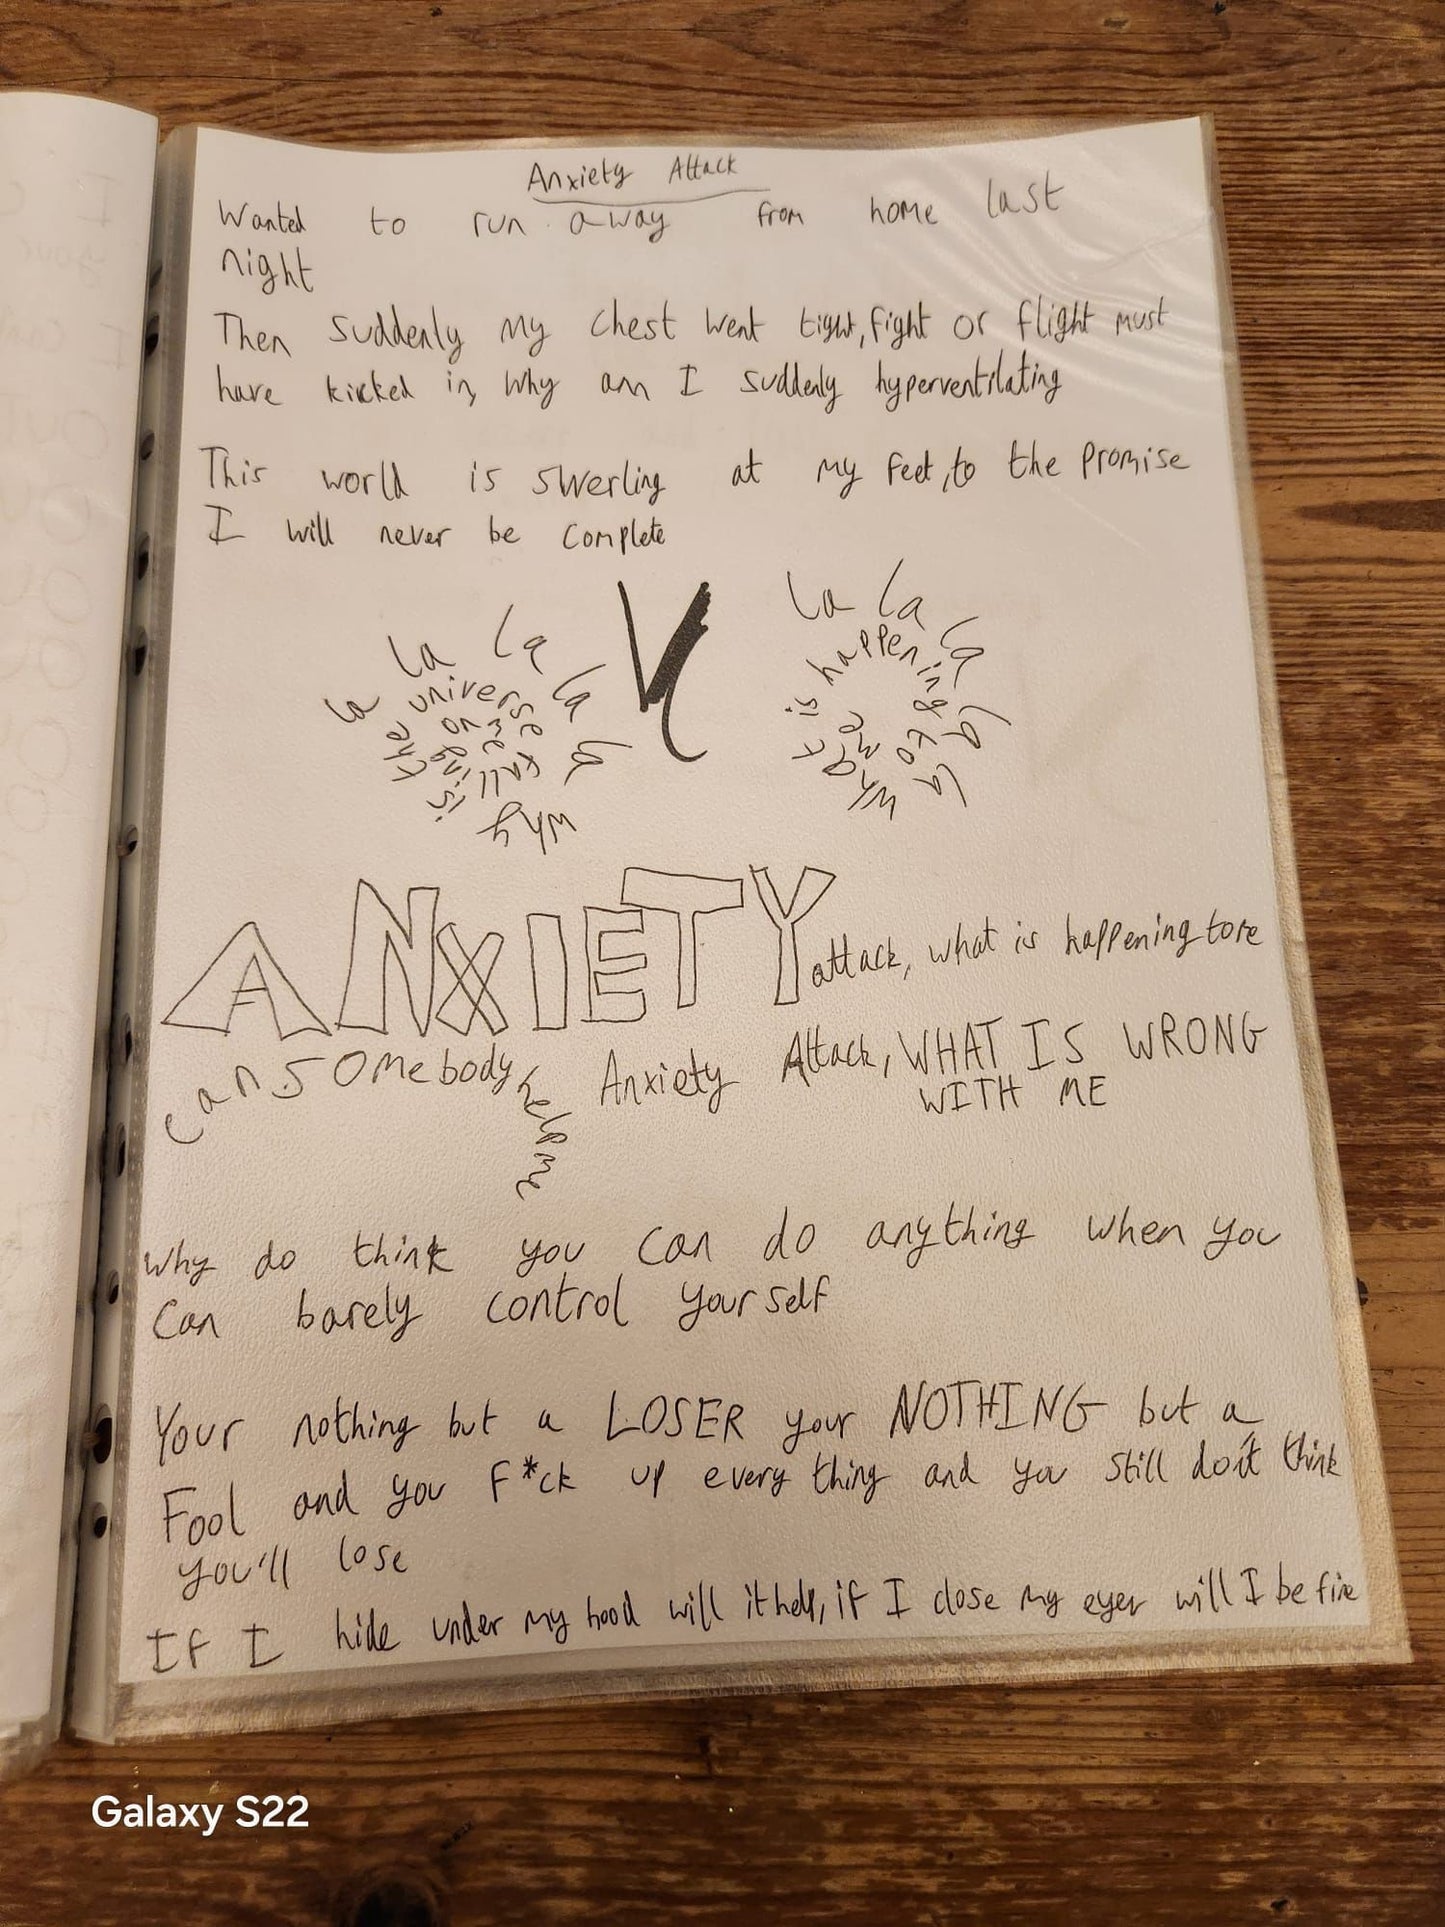 Anxiety Attack
Wanted to run away from home last
night
Then suddenly my chest went tight, fight or flight must
have kicked in, why am I suddenly hyperventilating
This world is swerling at my feet, to the promise
I will never be complete
la la la la la
why is the universe falling on me
la la la la la
what is happening to me
ANXIETY attack, what is happening to me
can somebody help me
Anxiety Attack, WHAT IS WRONG
WITH ME
Why do think you can do anything when you
can barely control yourself
Your nothing but a LOSER your NOTHING but a
Fool and you F*ck up every thing and you still don't think
you'll lose
If I hide under my hood will it help, if I close my eyes will I be fine
Galaxy S22